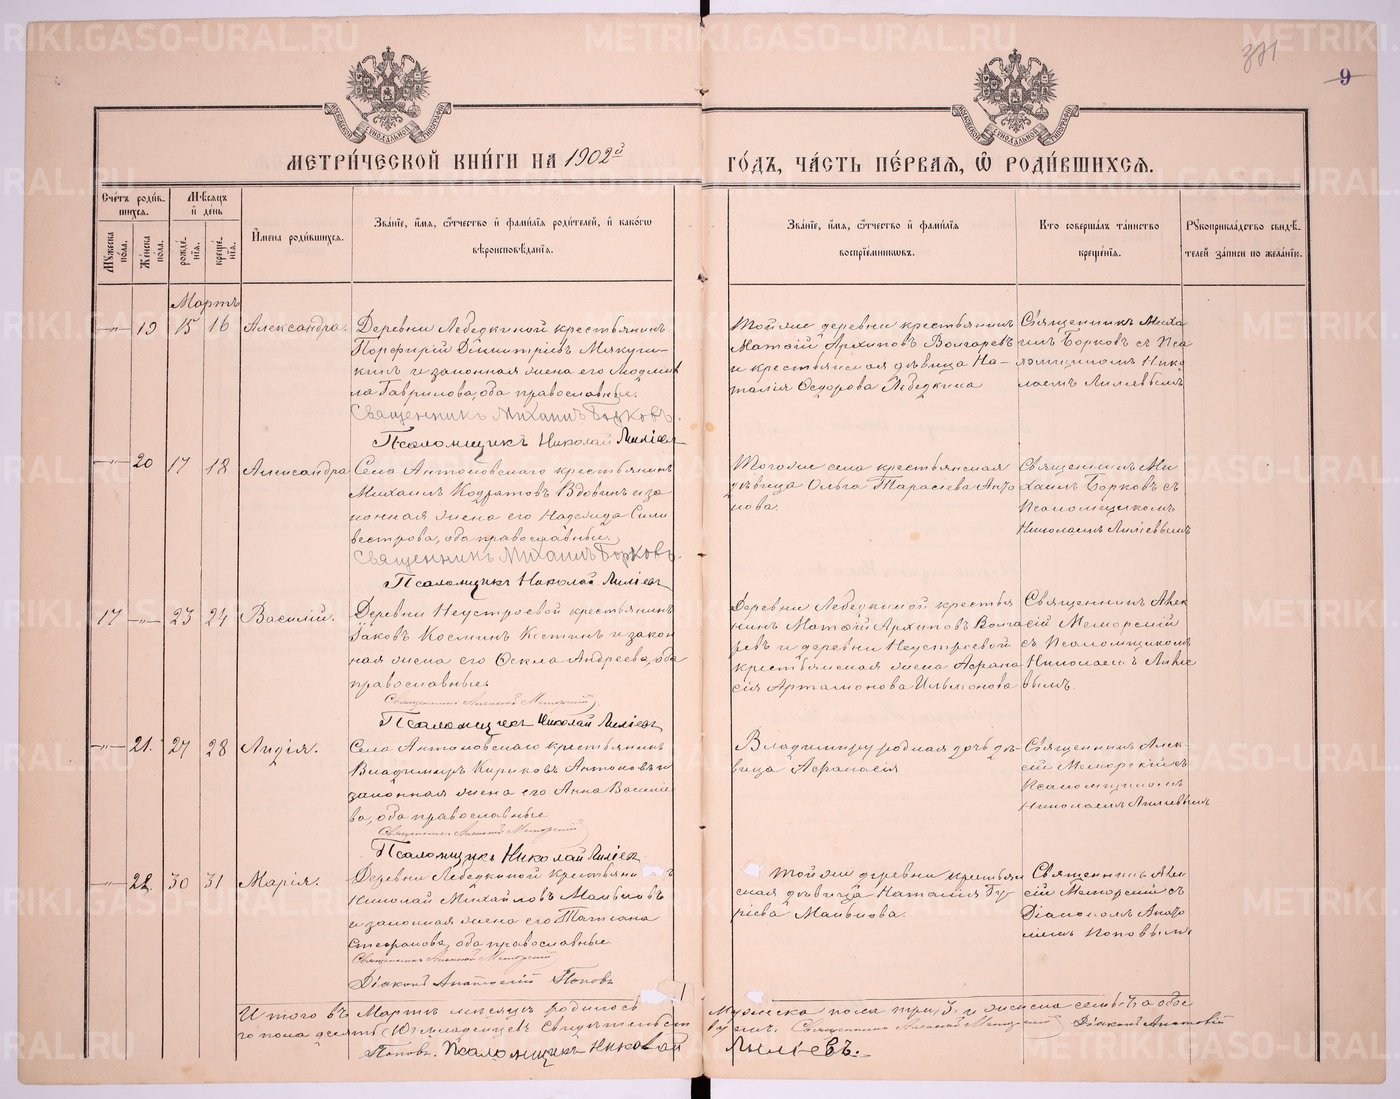 371
9
МЕТРИ́ЧЕСКОЙ КНИ́ГИ НА 1902й ГО́ДЪ, ЧА́СТЬ ПЕ́РВАЯ, Ѽ РОДИ́ВШИХСЯ.
Сче́тъ роди́в-
шихся.
Му́жеска пола.
Же́нска пола.
Мѣ́сяцъ
и де́нь
рожде́-
нїя.
креще́-
нїя.
И҆мена роди́вшихся.
Зва́нїе, и҆́мя, ѻ҆́тчество и҆ фами́лїя роди́телей, и҆ како́гѡ
вѣроисповѣ́данїя.
Зва́нїе, и҆́мя, ѻ҆́тчество и҆ фами́лїя
воспрїе́мниковъ.
Кто соверша́лъ та́инство
креще́нїя.
Рꙋкоприкла́дство свидѣ́-
телей за́писи по жела́нїю.
Мартъ
—"— 19 15 16 Александра.
Деревни Лебедкиной крестьянинъ
Порфирій Димитріевъ Мякуши-
кинъ и законная жена его Людми
ла Гаврилова, оба православные.
Священникъ Михаилъ Борковъ.
Псаломщикъ Николай Лиліевъ
Той же деревни крестьянинъ
Матѳій Архиповъ Волгаревъ
и крестьянская дѣвица На-
талія Ѳедорова Лебедкина
Священникъ Миха
илъ Борковъ съ Пса
ломщикомъ Нико
лаемъ Лиліевымъ
—"— 20 17 18 Александра
Села Антоновскаго крестьянинъ
Михаилъ Кодратовъ Вдовинъ и за
конная жена его Надежда Сили
вестрова, оба православные.
Священникъ Михаилъ Борковъ.
Псаломщикъ Николай Лиліевъ
Тогоже села крестьянская
дѣвица Ольга Тарасіева Анто
нова.
Священникъ Ми
хаилъ Борковъ съ
Псаломщикомъ
Николаемъ Лиліевымъ
17 —"— 23 24 Василій.
Деревни Неустроевой крестьянинъ
Іаковъ Косминъ Костинъ и закон
ная жена его Ѳекла Андреева, оба
православные
Священникъ Алексій Меморскій
Псаломщикъ Николай Лиліевъ
Деревни Лебедкиной крестья
нинъ Матѳій Архиповъ Волга
ревъ и деревни Неустроевой
крестьянская жена Аѳана
сія Артамонова Ильмонова
Священникъ Алек
сій Меморскій
съ Псаломщикомъ
Николаемъ Лиліе
вымъ.
—"— 21. 27 28 Лидія.
Села Антоновскаго крестьянинъ
Владимиръ Кириковъ Антоновъ и
законная жена его Анна Василie
ва, оба православные
Священникъ Алексій Меморскій
Псаломщикъ Николай Лиліевъ
Владимиру родная дочь дѣ-
вица Аѳанасія
Священникъ Алек
сій Меморскій съ
Псаломщикомъ
Николаемъ Лиліевымъ
—"— 22 30 31 Марія.
Деревни Лебедкиной Крестьяни ъ
Николай Михайловъ Маньковъ
и законная жена его Татіана
Стефанова, оба православные.
Священникъ Алексій Меморскій
Діаконъ Анатолій Поповъ
Той же деревни крестьян
ская дѣвица Наталія Гу-
ріева Манькова.
Священникъ Алек
сій Меморскій съ
Діакономъ Анато
ліемъ Поповымъ
Итого въ Мартѣ мѣсяцѣ родилось мужеска пола три, 3. и женска семь 7. а обое
го пола десять (10) младенцевъ Священникъ Алексій Меморскій Діаконъ Анатолій
Поповъ. Псаломщикъ Николай Лиліевъ.
METRIKI.GASO-URAL.RU